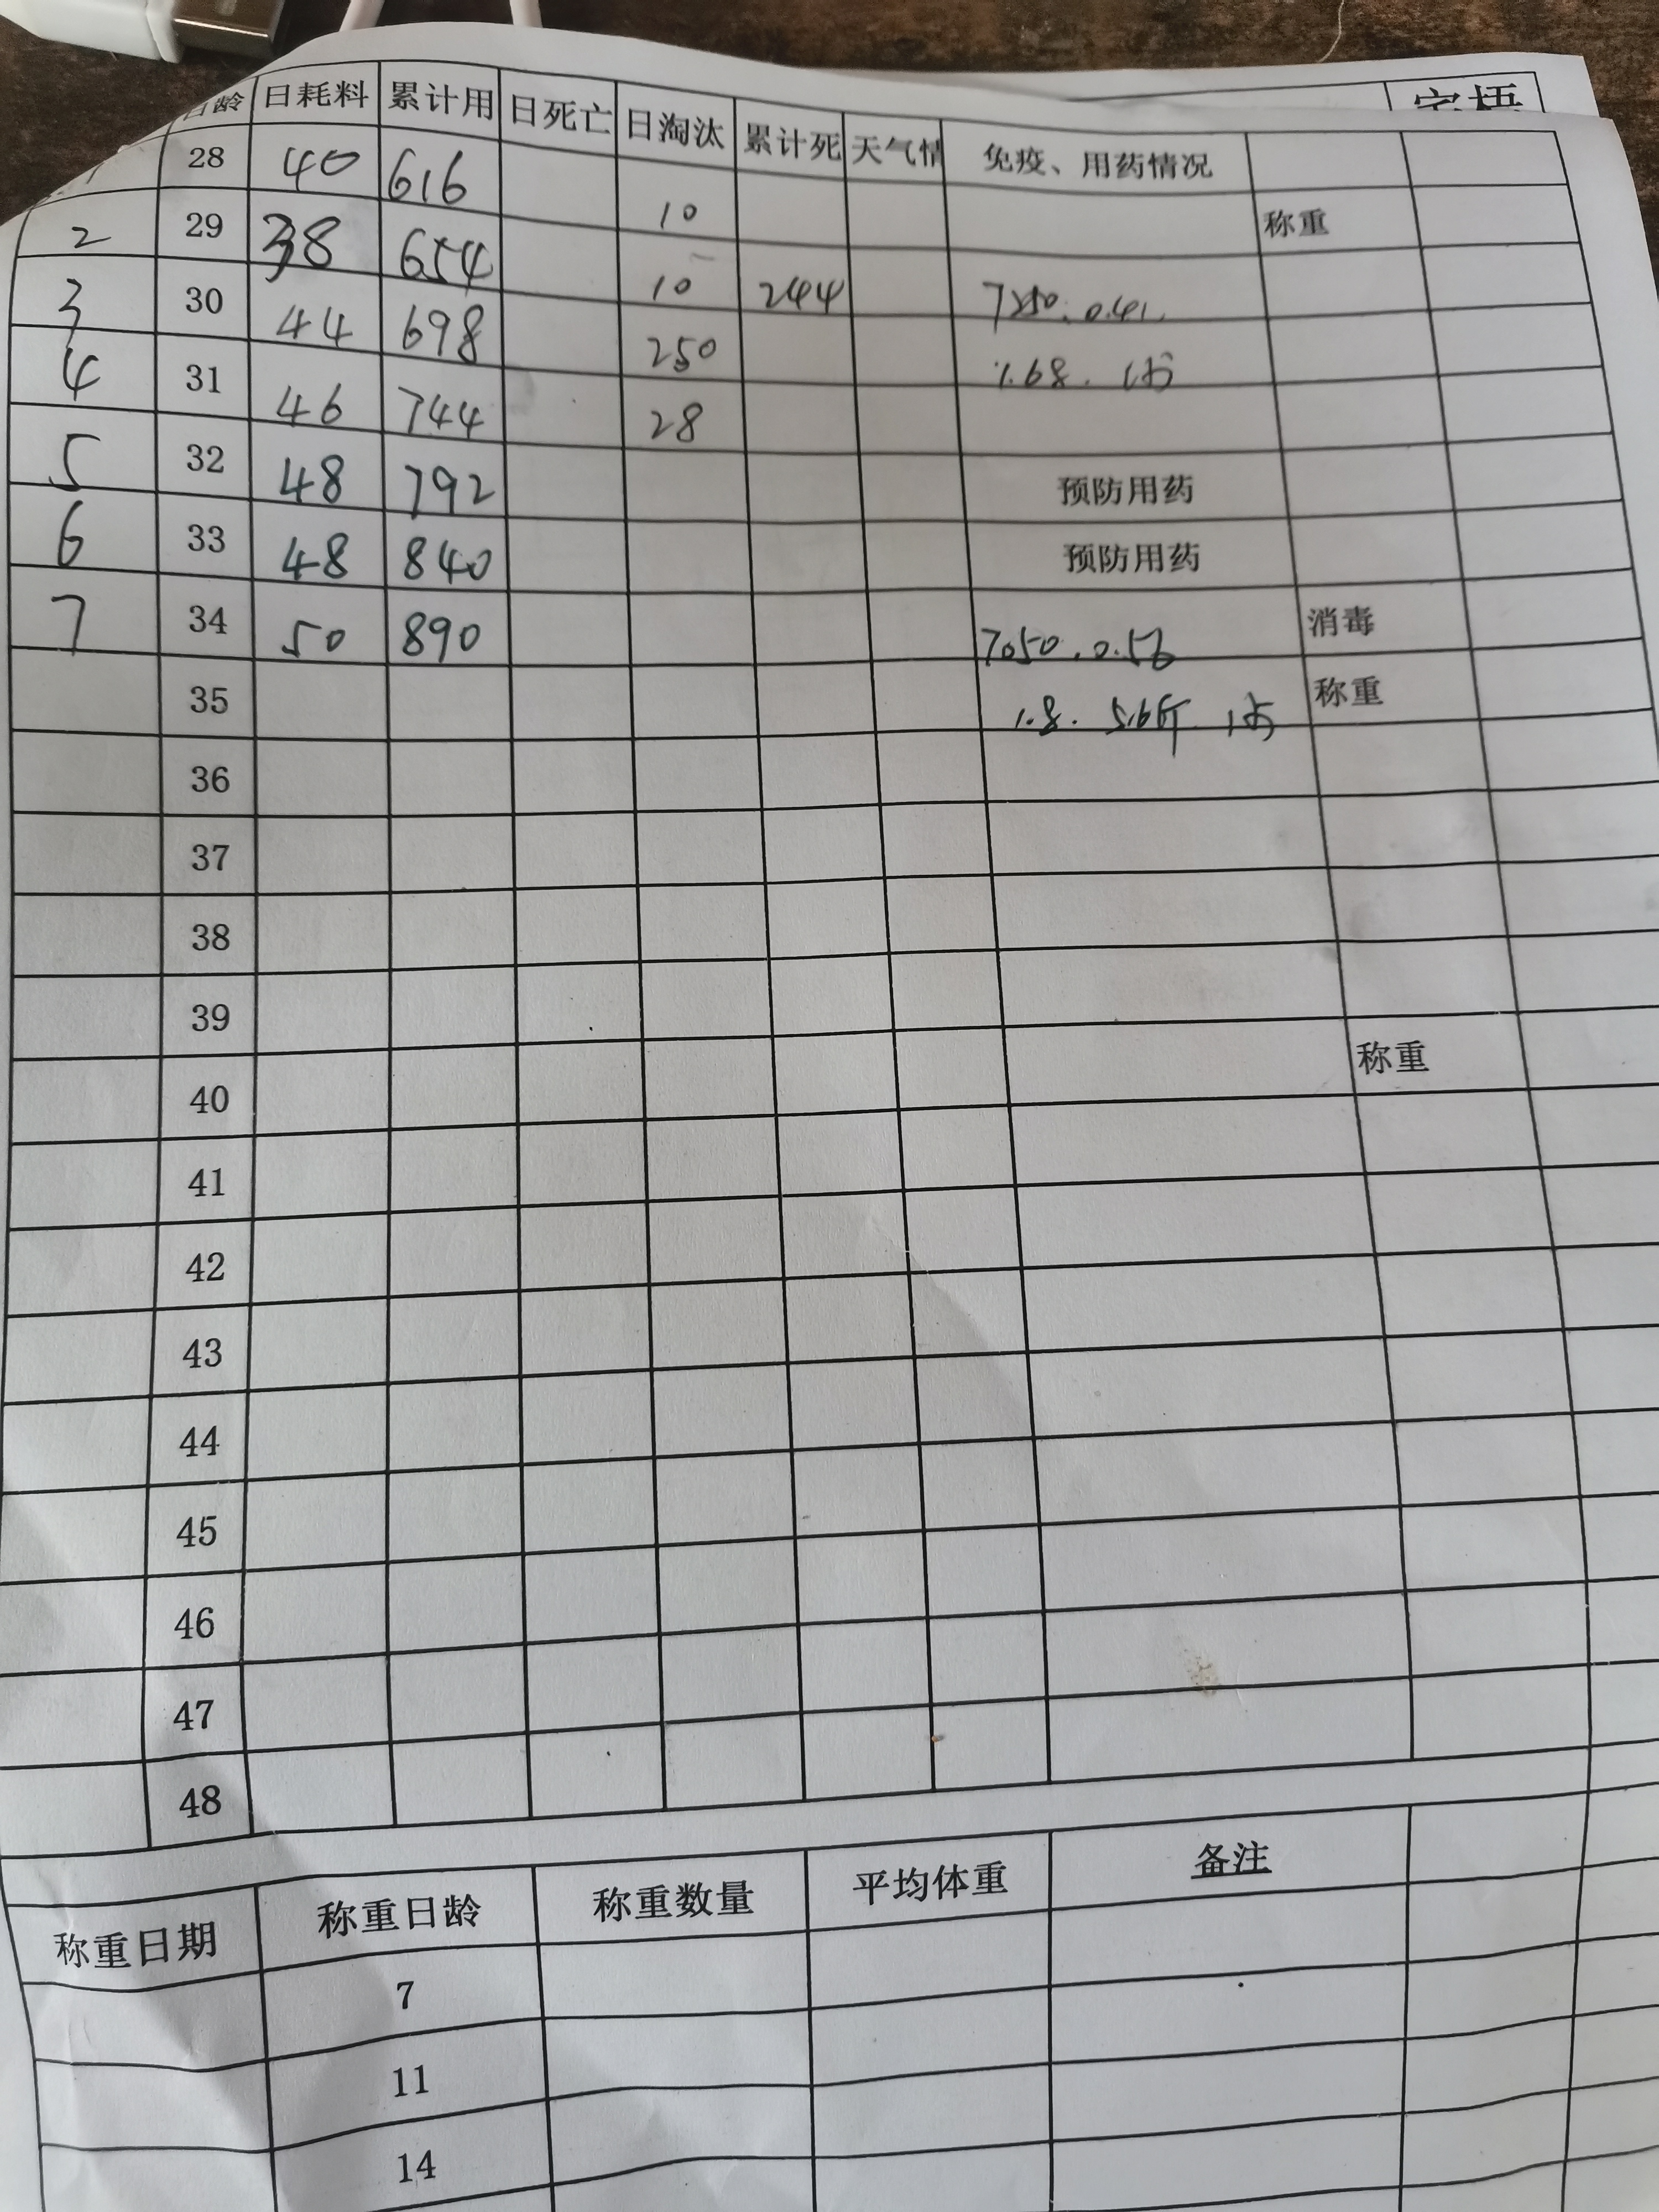 日龄 日耗料 累计用 日死亡 日淘汰 累计死 天气情 免疫、用药情况
28 40 616 10 称重
2 29 38 654 10 244 7250. 0.41.
3 30 44 698 250 1.68.
4 31 46 744 28
5 32 48 792 预防用药
6 33 48 840 预防用药
7 34 50 890 7050. 0.56 消毒
35 1.8. 5.6斤 称重
36
37
38
39
40 称重
41
42
43
44
45
46
47
48
称重日期 称重日龄 称重数量 平均体重 备注
7
11
14